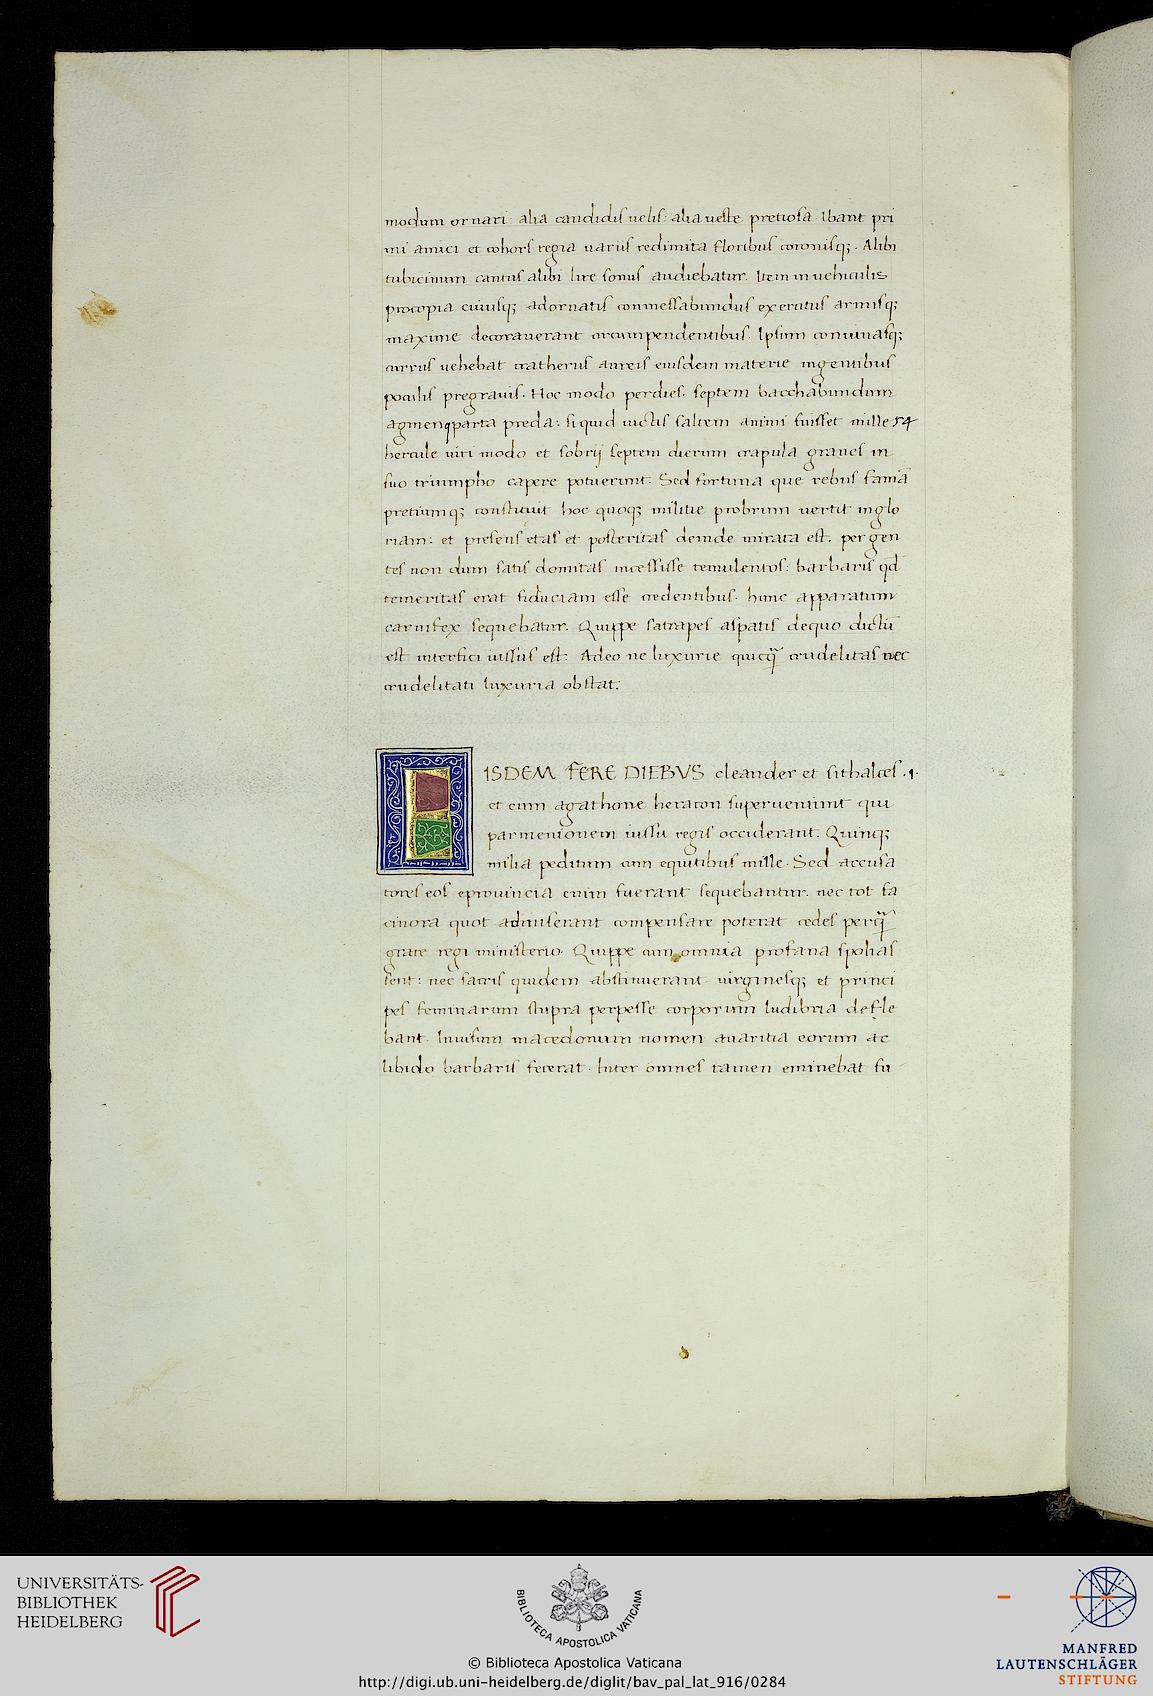 modum ornari: alia candidis uelis: alia ueste pretiosa. Ibant pri
mi amici et cohors regia uariis redimita floribus coronisq;. Alibi
tubicinum cantus alibi lire sonus audiebatur. Item in uehiculis
procopia cuiusq; adornatis conmessabundus exercitus armisq;
maxime decorauerant circumpendentibus. Ipsum conuiuasq;
currus uehebat cratheris aureis eiusdem materie ingentibus
poculis pregrauis. Hoc modo perdies. septem bacchabundum
agmen parta preda: siquid uictis saltem animi fuisset mille 54
hercule uiri modo et sobrij septem dierum crapula graues in
suo triumpho capere potuerunt. Sed fortuna que rebus famā
pretiumq; constituit hoc quoq; militie probrum uertit inglo
riam: et presens etas et posteritas deinde mirata est. per gen
tes non dum satis domitas incessisse temulentos: barbaris qđ
temeritas erat fiduciam esse credentibus. hunc apparatum
carnifex sequebatur. Quippe satrapes aspatis dequo dictū
est interfici iussus est: Adeo ne luxurie quicq̄ crudelitas nec
crudelitati luxuria obstat.
ISDEM FERE DIEBVS cleander et sithalces .1.
et cum agathone heracon superueniunt qui
parmenionem iussu regis occiderant. Quinq;
milia peditum cum equitibus mille. Sed accusa
tores eos eprouincia enim fuerant sequebantur. nec tot fa
cinora quot admiserant compensare poterat cedes perq̄
grate regi ministerio. Quippe cum omnia profana spolias
sent: nec sacris quidem abstinuerant uirginesq; et princi
pes feminarum stupra perpesse corporum ludibria defle
bant. Inuisum macedonum nomen auaritia eorum ac
libido barbaris fecerat. Inter omnes tamen eminebat fu
UNIVERSITÄTS-
BIBLIOTHEK
HEIDELBERG
BIBLIOTECA APOSTOLICA VATICANA
© Biblioteca Apostolica Vaticana
http://digi.ub.uni-heidelberg.de/diglit/bav_pal_lat_916/0284
MANFRED
LAUTENSCHLÄGER
STIFTUNG